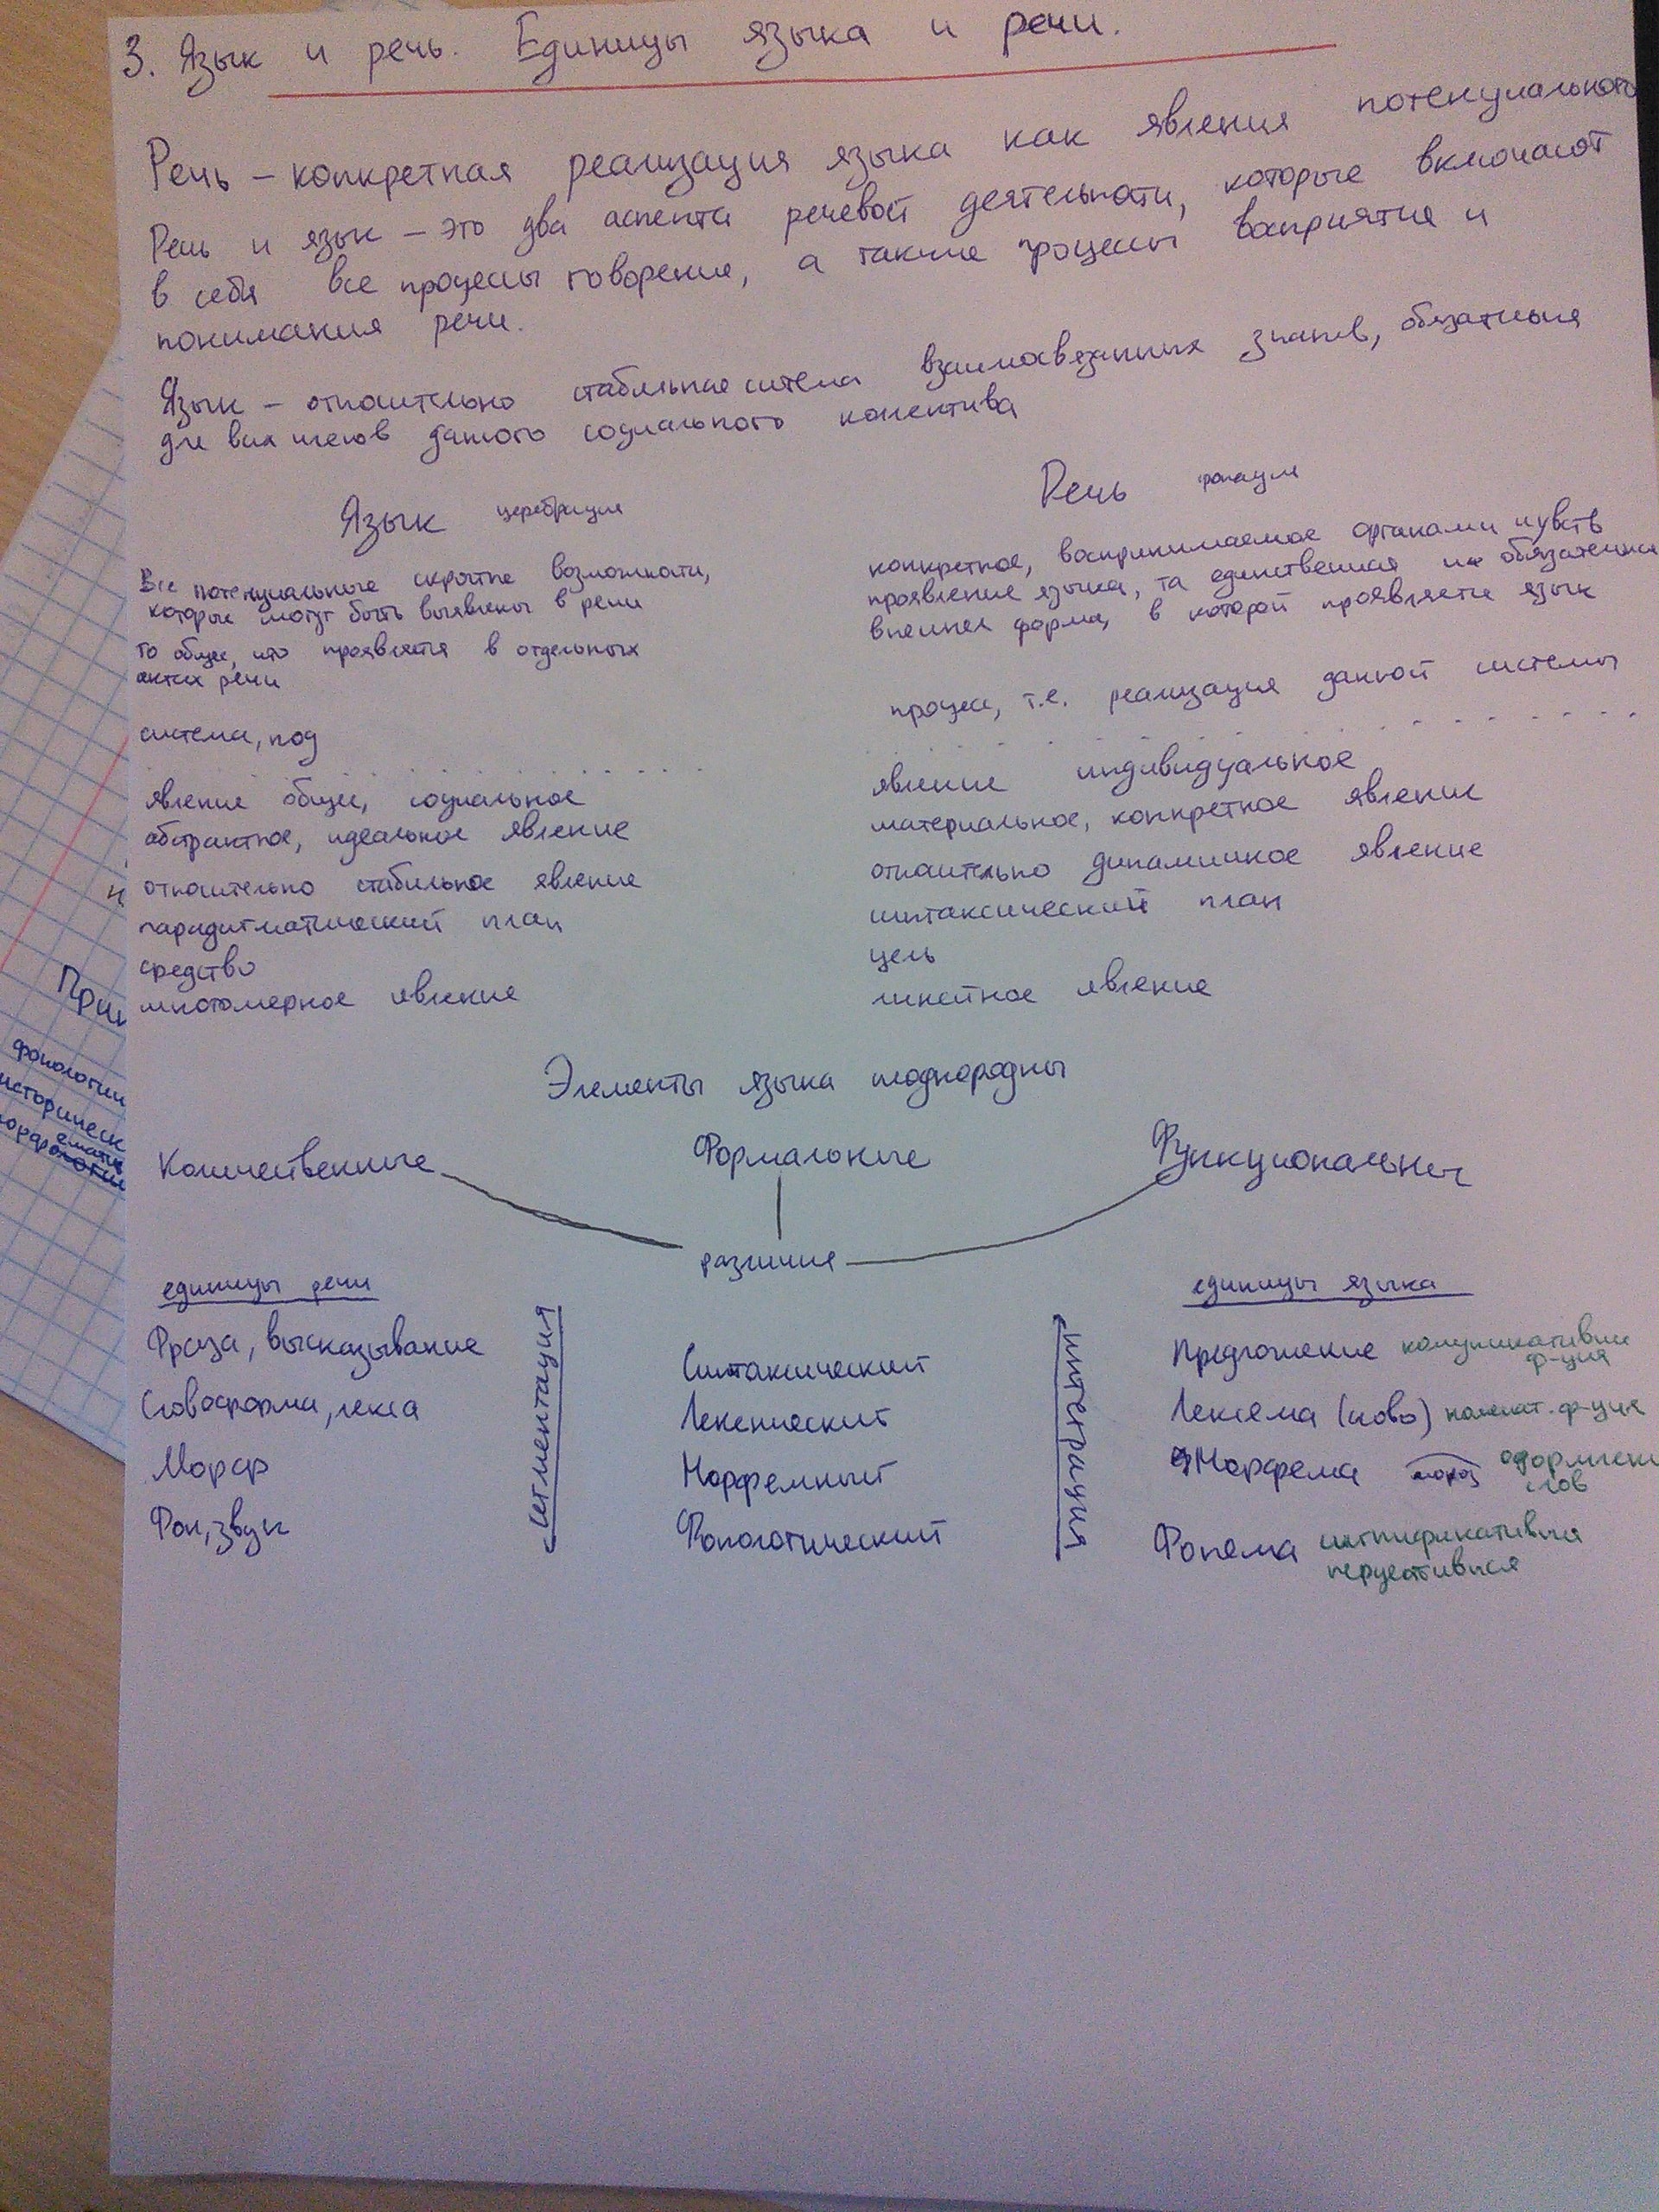 3. Язык и речь. Единицы языка и речи.
Речь – конкретная реализация языка как явления потенциального
Речь и язык – это два аспекта речевой деятельности, которые включают
в себя все процессы говорение, а также процессы восприятие и
понимания речи.
Язык – относительно стабильное система взаимосвязанных знаков, обязательная
для всех членов данного социального коллектива
Язык церебрация
Все потенциальные скрытые возможности,
которые могут быть выявлены в речи
то общее, что проявляется в отдельных
актах речи
система, под
явление общее, социальное
абстрактное, идеальное явление
относительно стабильное явление
парадигматический план
средство
многомерное явление
Речь фонация
конкретное, воспринимаемое органами чувств
проявление языка, та единственная обязательная
внешняя форма, в которой проявляется язык
процесс, т.е. реализация данной системы
явление индивидуальное
материальное, конкретное явление
относительно динамичное явление
синтаксический план
цель
линейное явление
Элементы языка неоднородны
Количественные Формальные Функциональные
различия
единицы речи
Фраза, высказывание
Словоформа, лекса
Морф
Фон, звук
сегментация
Синтаксический
Лексический
Морфемный
Фонологический
интеграция
единицы языка
Предложение комуникативная
ф-ция
Лексема (слово) номинат. ф-ция
Морфема оформлен
слов
Фонема сигнификативная
перцептивная
При
фонологии
историческ
ематик